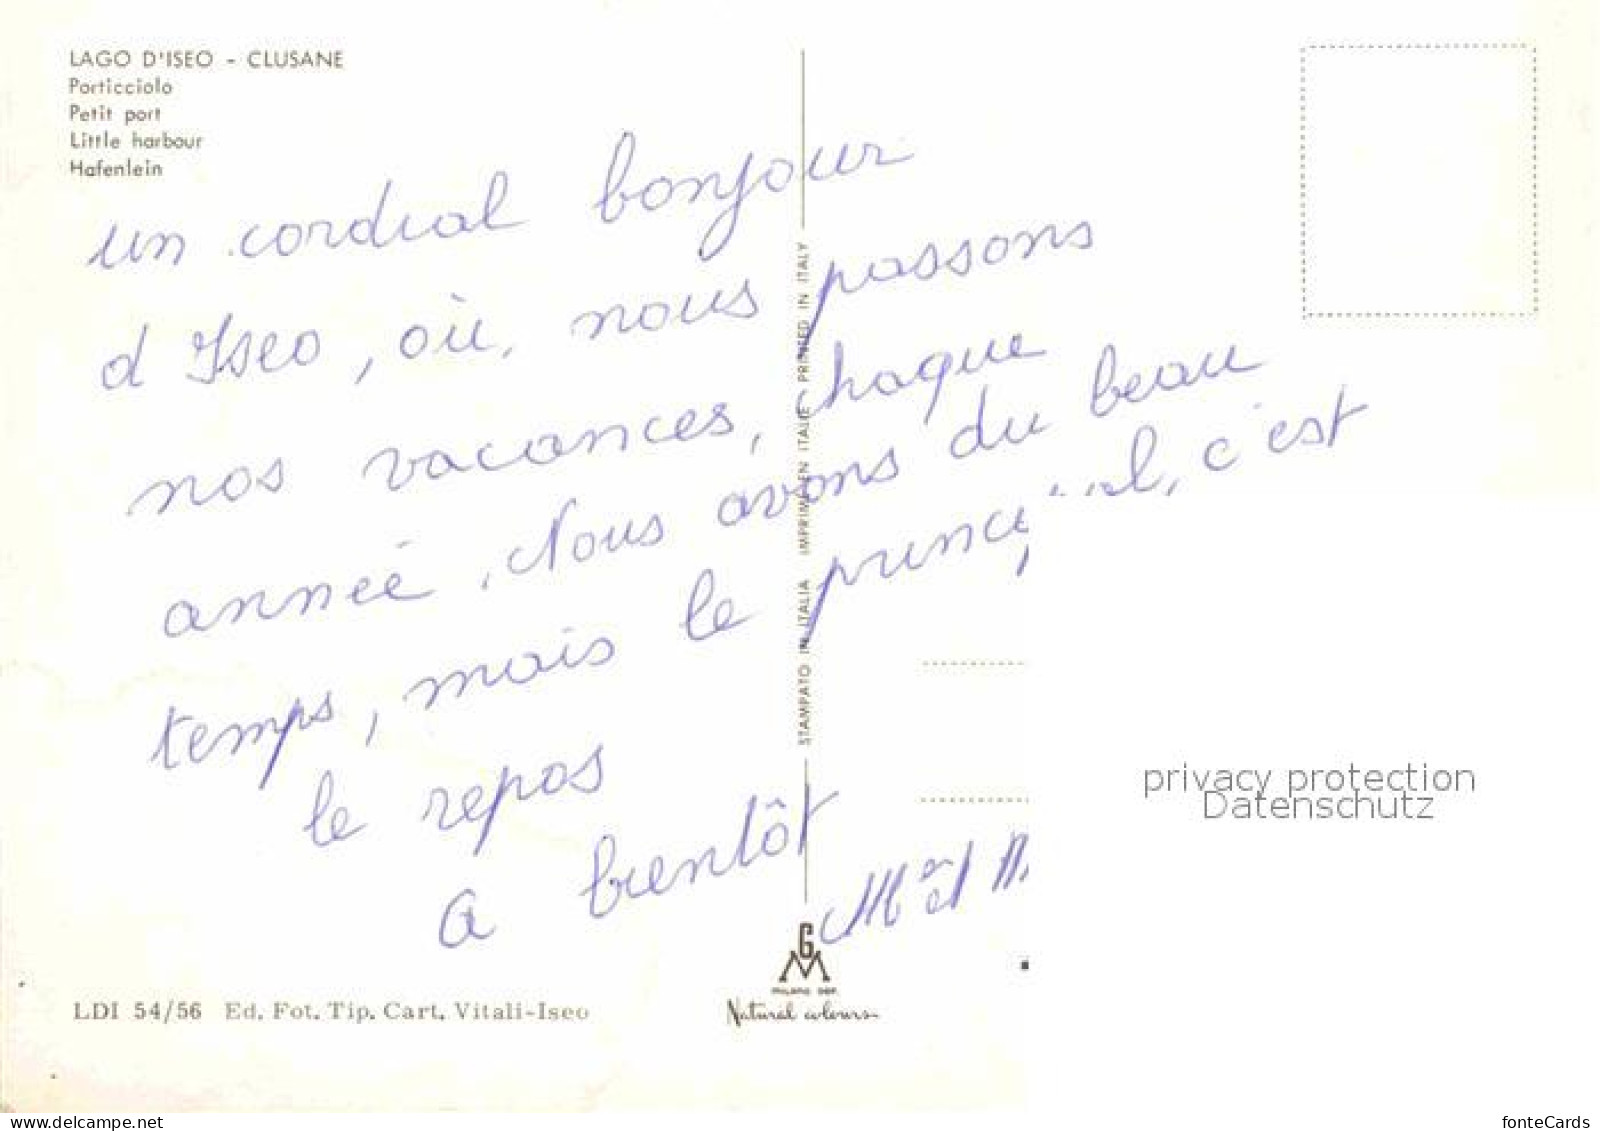 LAGO D'ISEO - CLUSANE
Porticciolo
Petit port
Little harbour
Hafenlein
un cordial bonjour
d'Iseo, où, nous passons
nos vacances, chaque
année. Nous avons du beau
temps, mais le principal, c'est
le repos
a bientôt
STAMPATO IN ITALIA IMPRIME EN ITALIE - PRINTED IN ITALY
GM
MILANO DEP.
Natural colours
LDI 54/56 Ed. Fot. Tip. Cart. Vitali-Iseo
privacy protection
Datenschutz
www.delcampe.net
fonteCards